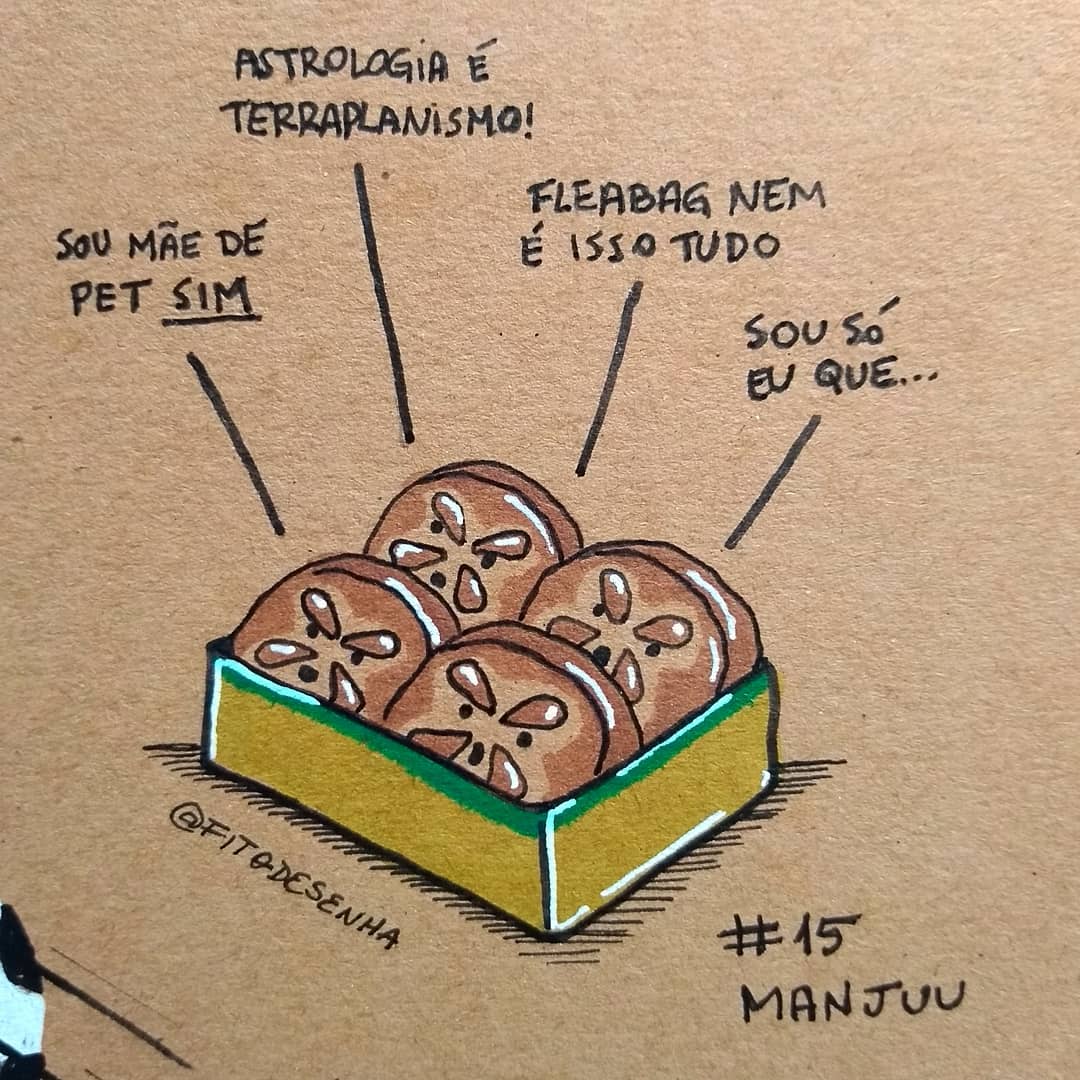 ASTROLOGIA É
TERRAPLANISMO!
FLEABAG NEM
É ISSO TUDO
SOU MÃE DE
PET SIM
SOU SÓ
EU QUE...
@FITODESENHA
#15
MANJUU